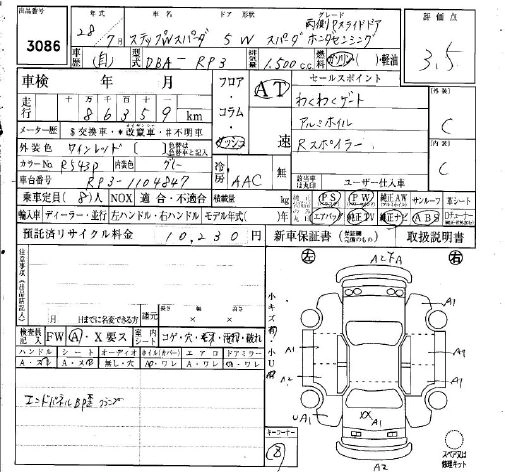 出品番号 3086
年式 車名 ドア 形状 グレード
28年 7月 ステップWスパーダ 5W スパーダ ホンダセンシング
両側Pスライドドア
評価点 3.5
車歴 (自) 型式 DBA-RP3 排気量 1,500cc 燃料 ガソリン( )軽油
車検 年 月
フロア・コラム・
AT
セールスポイント
走行 十 万 千 百 十 一
86359 km
わくわくゲート
外装 C
メーター歴 $交換車・*改竄車・#不明車
速
アルミホイル
外装色 ワインレッド( )
Rスポイラー
カラーNo R543P 内装色 グレー
冷房 AAC 無
内装 C
車台番号 RP3-1104847
ユーザー仕入車
乗車定員 (8)人 NOX 適合・不適合 積載量 kg
PS PW 純正AW サンルーフ 革シート
輸入車 ディーラー・並行 左ハンドル・右ハンドル モデル年式( )年
エアバッグ 純正TV 純正ナビ ABS
預託済リサイクル料金 10,230円 新車保証書 取扱説明書
注意事項
左 A2 右
月 日までに名変できる方
諸元 長さ 幅 高さ
× ×
小キズ
小U
検査員記入 FW A・X要ス 室内シート コゲ・穴・
ハンドル シート オーディオ ホイル(カバー) エアロ ドアミラー
無し・穴 ワレ A・ワレ ワレ
A1
A1
A2
UA1
XX A1
A1
A2
エンドパネルBP
キーコーナー 8
スペア又は修理キット